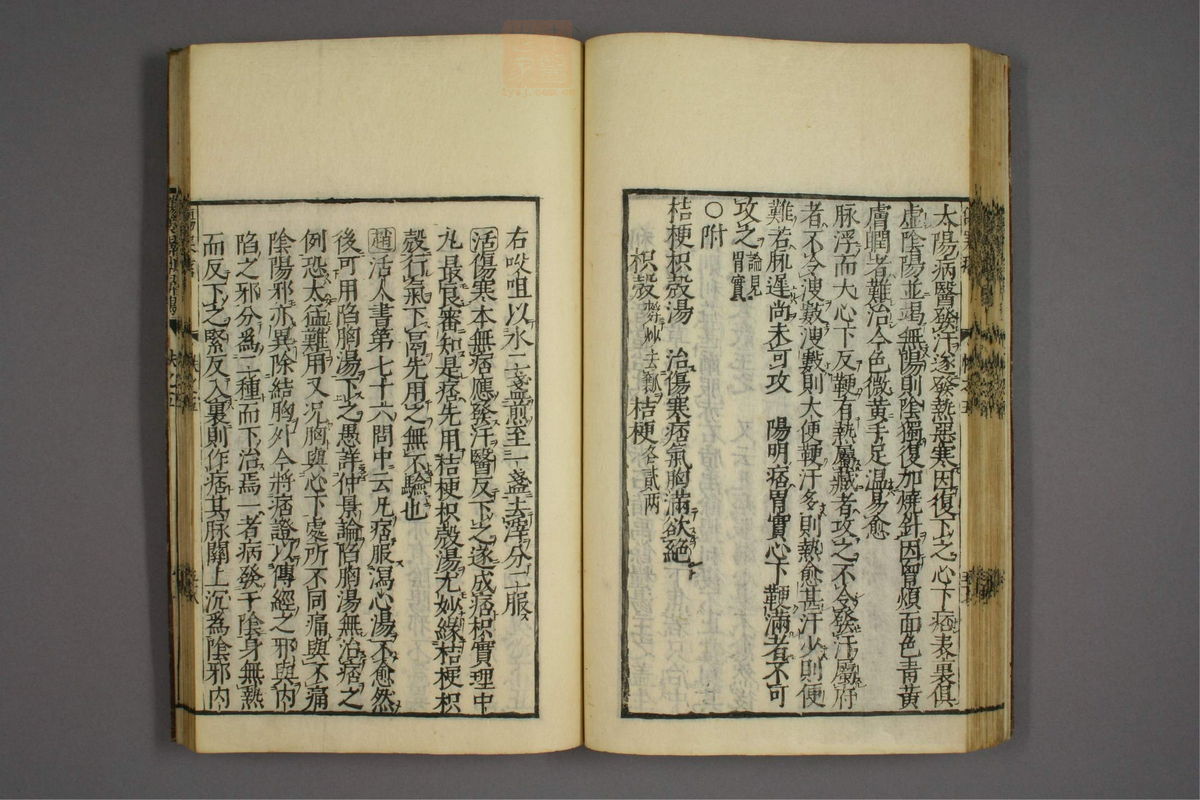 太陽病醫發汗遂發熱惡寒因復下之心下痞表裏俱
虛陰陽並竭無陽則陰獨復加燒針因胷煩面色靑黃
膚瞤者難治今色微黃手足温易愈
脉浮而大心下反鞕有熱屬藏者攻之不令發汗屬府
者不令溲數溲數則大便鞕汗多則熱愈甚汗少則便
難若脉遲尚未可攻　陽明痞胃實心下鞕滿者不可
攻之論見胃實
○附
桔梗枳殼湯　治傷寒痞氣胸滿欲絕
枳殼麩炒去瓤桔梗各貳兩
右㕮咀以水二盞煎至一盞去滓分二服
活傷寒本無痞應發汗醫反下之遂成痞枳實理中
丸最良審知是痞先用桔梗枳殼湯尤妙緣桔梗枳
殼行氣下膈先用之無不驗也
趙活人書第七十六問中云凡痞服瀉心湯不愈然
後可用陷胸湯下之愚詳仲景論陷胸湯無治痞之
例恐太猛難用又况胸與心下處所不同痛與不痛
陰陽邪亦異除結胸外今將痞證以傳經之邪與内
陷之邪分爲二種而下治焉一者病發于陰身無熱
而反下之緊反入裏則作痞其脉關上沉爲陰邪内